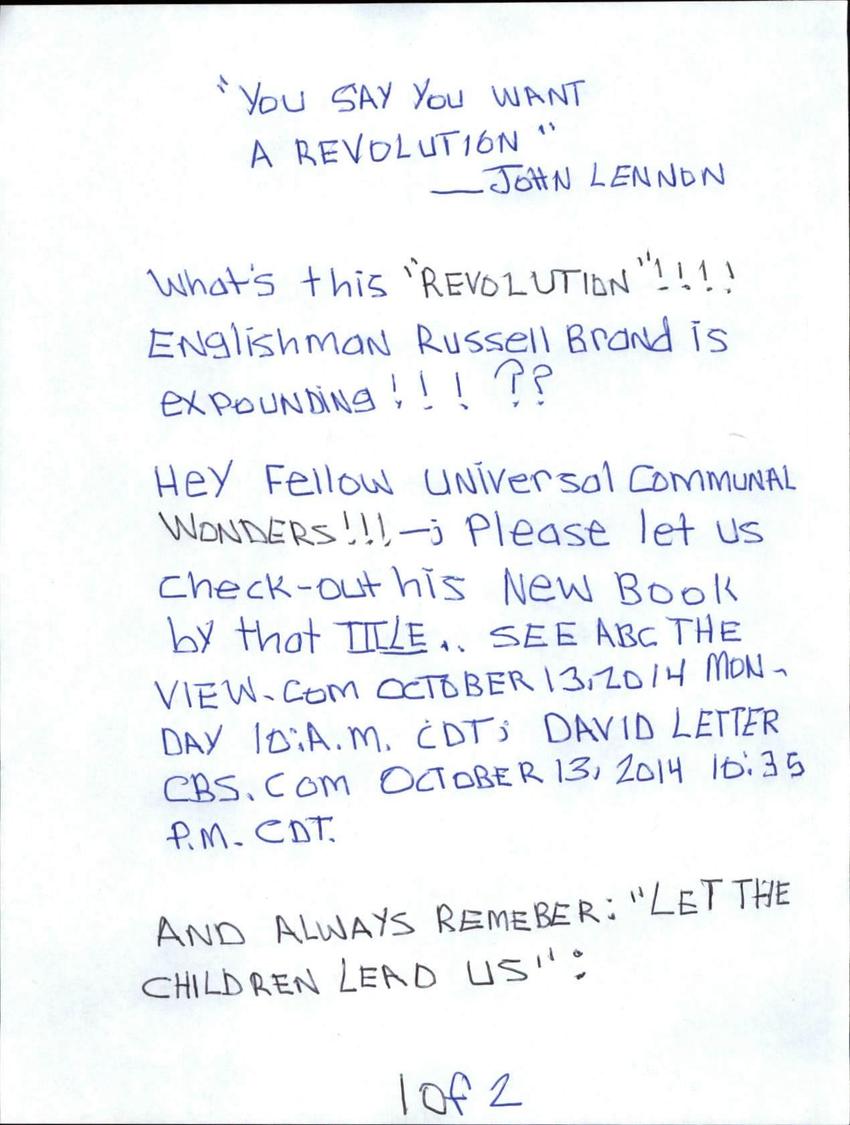 "YOU SAY YOU WANT
A REVOLUTION"
—JOHN LENNON
What's this "REVOLUTION"!!!!
ENglishmaN Russell Brand is
expouNDiNg!!! ??
Hey Fellow UNiversal COMMUNAL
WONDERS!!!—; Please let us
check-out his New Book
by that TITLE.. SEE ABC THE
VIEW.Com OCTOBER 13,2014 MON-
DAY 10:A.M. CDT; DAVID LETTER
CBS.Com OCTOBER 13, 2014 10:35
P.M. CDT.
AND ALWAYS REMEBER: "LET THE
CHILDREN LEAD US":
1 of 2